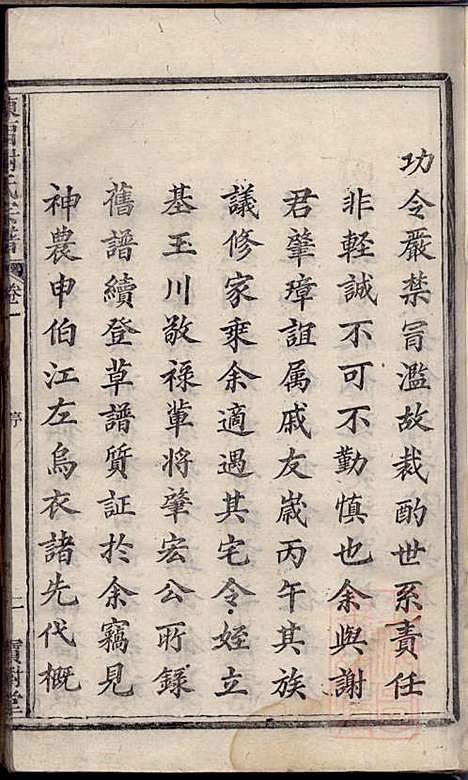 功令嚴禁冐濫故裁酌世系責任
非輕誠不可不勤慎也余與謝
君肇璋誼属戚友嵗丙午其族
議修家乘余適遇其宅令姪立
基玉川敬禄軰將肇宏公所録
舊譜續登草譜質証於余竊見
神農申伯江左烏衣諸先代概
氏宗譜
卷一
序
二
寶樹堂